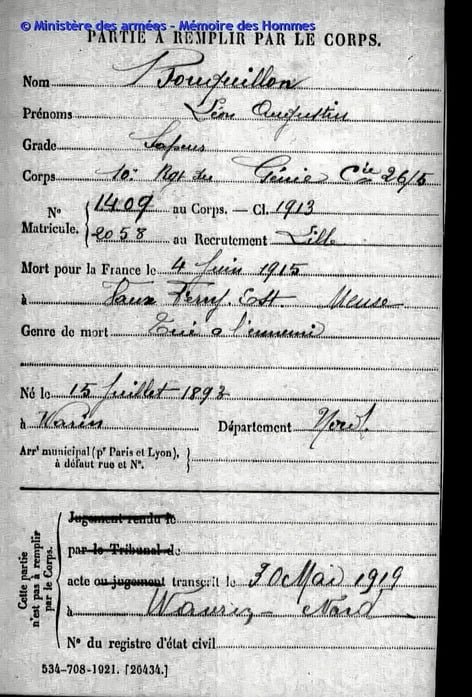 © Ministère des armées - Mémoire des Hommes
PARTIE À REMPLIR PAR LE CORPS.
Nom Fouquillon
Prénoms Léon Augustin
Grade Sapeur
Corps 10e Rgt du Génie Cie 26/5
N° Matricule. { 1409 au Corps. — Cl. 1913
2058 au Recrutement Lille
Mort pour la France le 4 Juin 1915
à Vaux Est. Meuse
Genre de mort Tué à l'ennemi
Né le 15 Juillet 1893
à Département Nord
Arrt municipal (pr Paris et Lyon), à défaut rue et N°. }
Cette partie n'est pas à remplir par le Corps.
Jugement rendu le
par le Tribunal de
acte ou jugement transcrit le 30 Mai 1919
à Nord
N° du registre d'état civil
534-708-1921. [26434.]